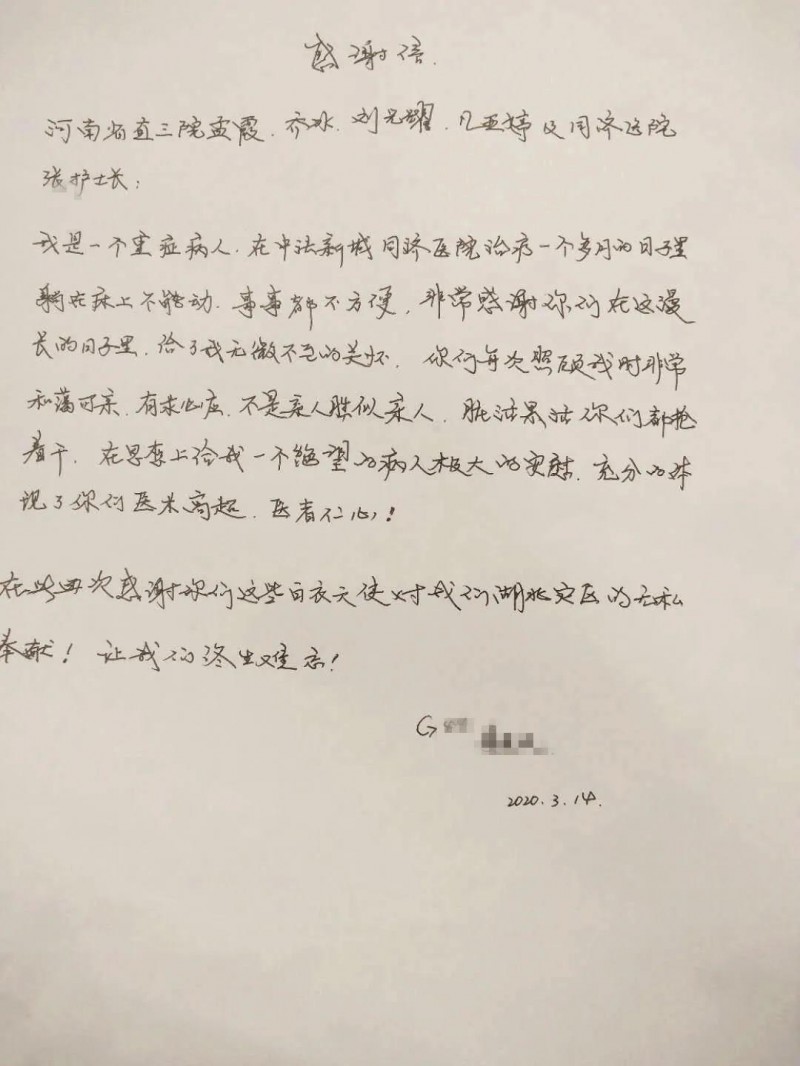 感谢信.
河南省直三院孟霞.乔冰.刘光耀.凡亚婷及同济医院
张护士长:
我是一个重症病人.在中法新城同济医院治疗一个多月的日子里
躺在床上不能动.事事都不方便,非常感谢你们在这漫
长的日子里.给了我无微不至的关怀.你们每次照顾我时非常
和蔼可亲.有求必应.不是亲人胜似亲人.脏活累活你们都抢
着干.在思想上给我一个绝望的病人极大的安慰.充分的体
现了你们医术高超.医者仁心!
在此再次感谢你们这些白衣天使对我们湖北灾区的无私
奉献!让我们终生难忘!
G
2020.3.14.